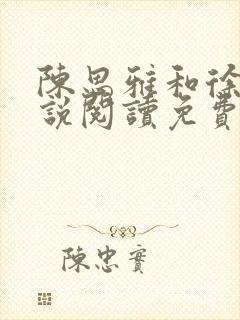 陳思雅和徐
說閱讀免費
陳忠實